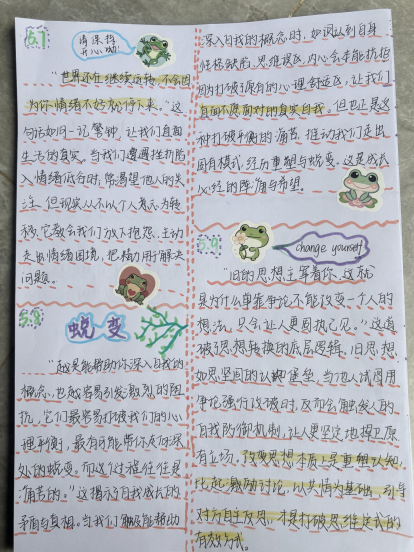 5.7
请保持
开心呦!
"世界还在继续运转,不会因
为你情绪不好就停下来。"这
句话如同一记警钟,让我们直面
生活的真实。当我们遭遇挫折陷
入情绪低谷时,常渴望他人的关
注,但现实从不以个人意志为转
移,它教会我们放下抱怨,主动
走出情绪困境,把精力用于解决
问题。
5.8
蜕变
"越是能帮助你深入自我的
概念,也越容易引发激烈的阻
抗,它们最容易打破我们的心
理平衡,最有可能带你走向深
处的蜕变。而这个过程往往是
痛苦的。"这揭示了自我成长的
矛盾与真相。当我们触及能帮助
深入自我的概念时,如风认到自身
性格缺陷、思维误区,内心会本能抗拒
因为打破了原有的心理舒适区,让我们
直面不愿面对的真实自我。但也正是这
种打破平衡的痛苦,推动我们走出
固有模式,经历重塑与蜕变。这是成长
必经的阵痛与希望。
5.9
change yourself
"旧的思想主宰着你,这就
是为什么单靠争论不能改变一个人的
想法,只会让人更固执己见。"这道
破了思想转换的底层逻辑。旧思想
如思坚固的认知堡垒,当他人试图用
争论强行攻破时,反而会触发人的
自我防御机制,让人更坚定地捍卫原
有立场。改变思想本质上是重塑认知,
比起激励讨论,以共情为基础,引导
对方自主反思,才是打破思维定式的
有效方式。